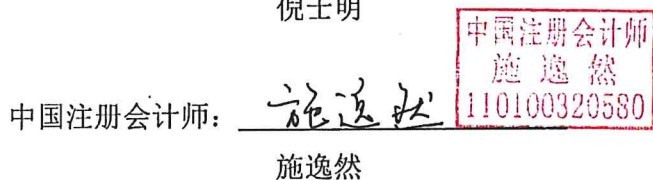 倪士明
中国注册会计师
施逸然
110100320580
中国注册会计师：施逸然
施逸然